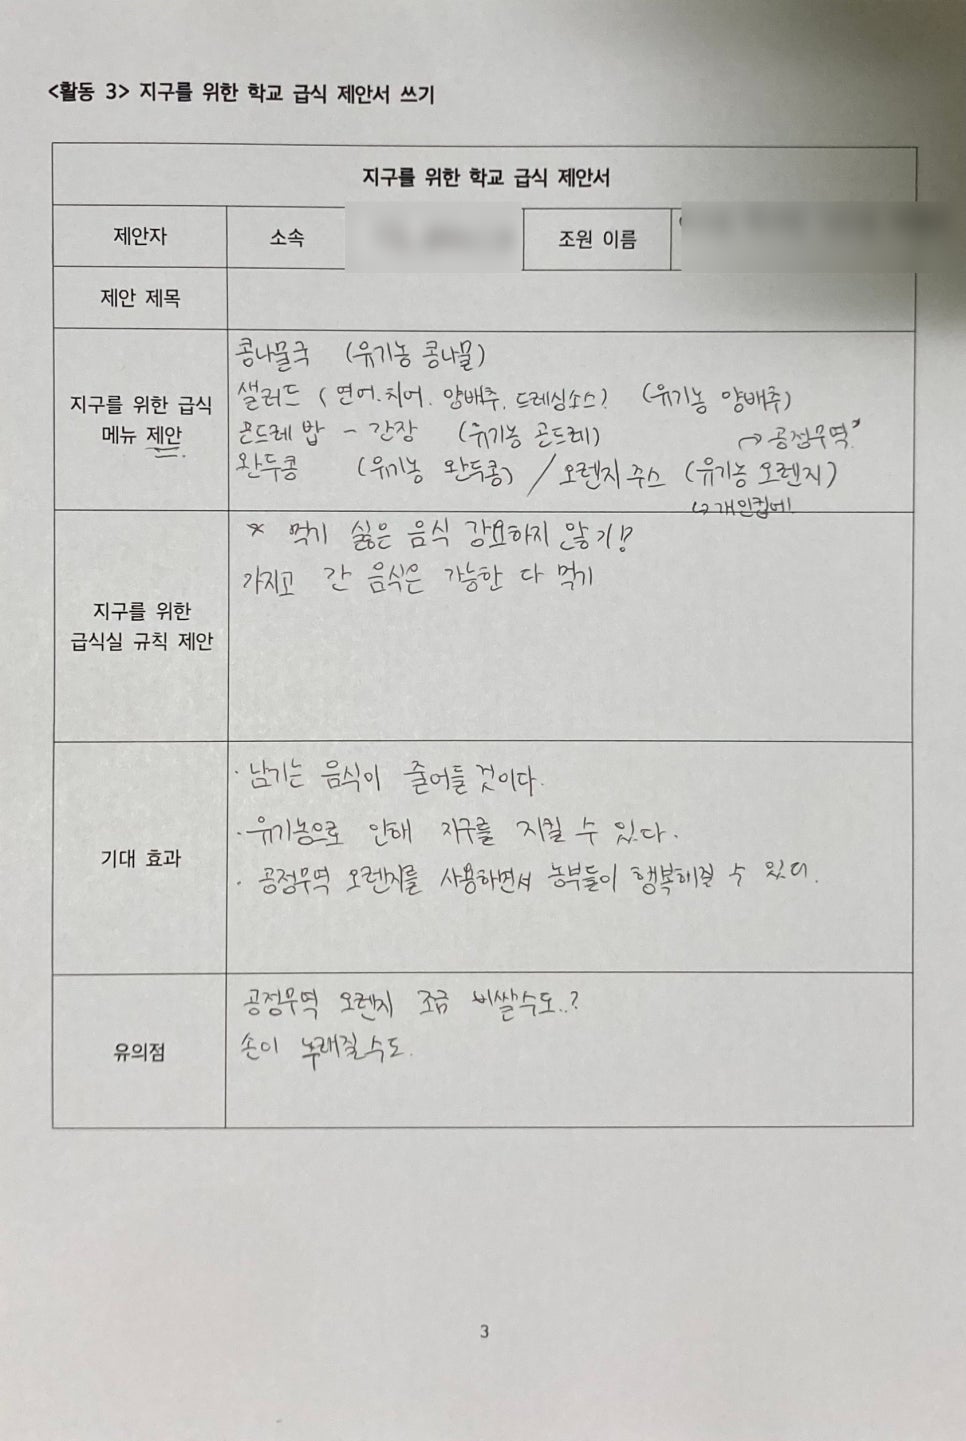 <활동 3> 지구를 위한 학교 급식 제안서 쓰기
지구를 위한 학교 급식 제안서
제안자 소속 조원 이름
제안 제목
지구를 위한 급식
메뉴 제안
콩나물국 (유기농 콩나물)
샐러드 (연어.치어. 양배추. 드레싱소스) (유기농 양배추)
곤드레 밥 - 간장 (유기농 곤드레) → 공정무역
완두콩 (유기농 완두콩) / 오렌지 주스 (유기농 오렌지)
↳ 개인컵에!
지구를 위한
급식실 규칙 제안
* 먹기 싫은 음식 강요하지 않기!
가지고 간 음식은 가능한 다 먹기
기대 효과
· 남기는 음식이 줄어들 것이다.
· 유기농으로 인해 지구를 지킬 수 있다.
· 공정무역 오렌지를 사용하면서 농부들이 행복해질 수 있다.
유의점
공정무역 오렌지 조금 비쌀수도..?
손이 노래질수도.
3